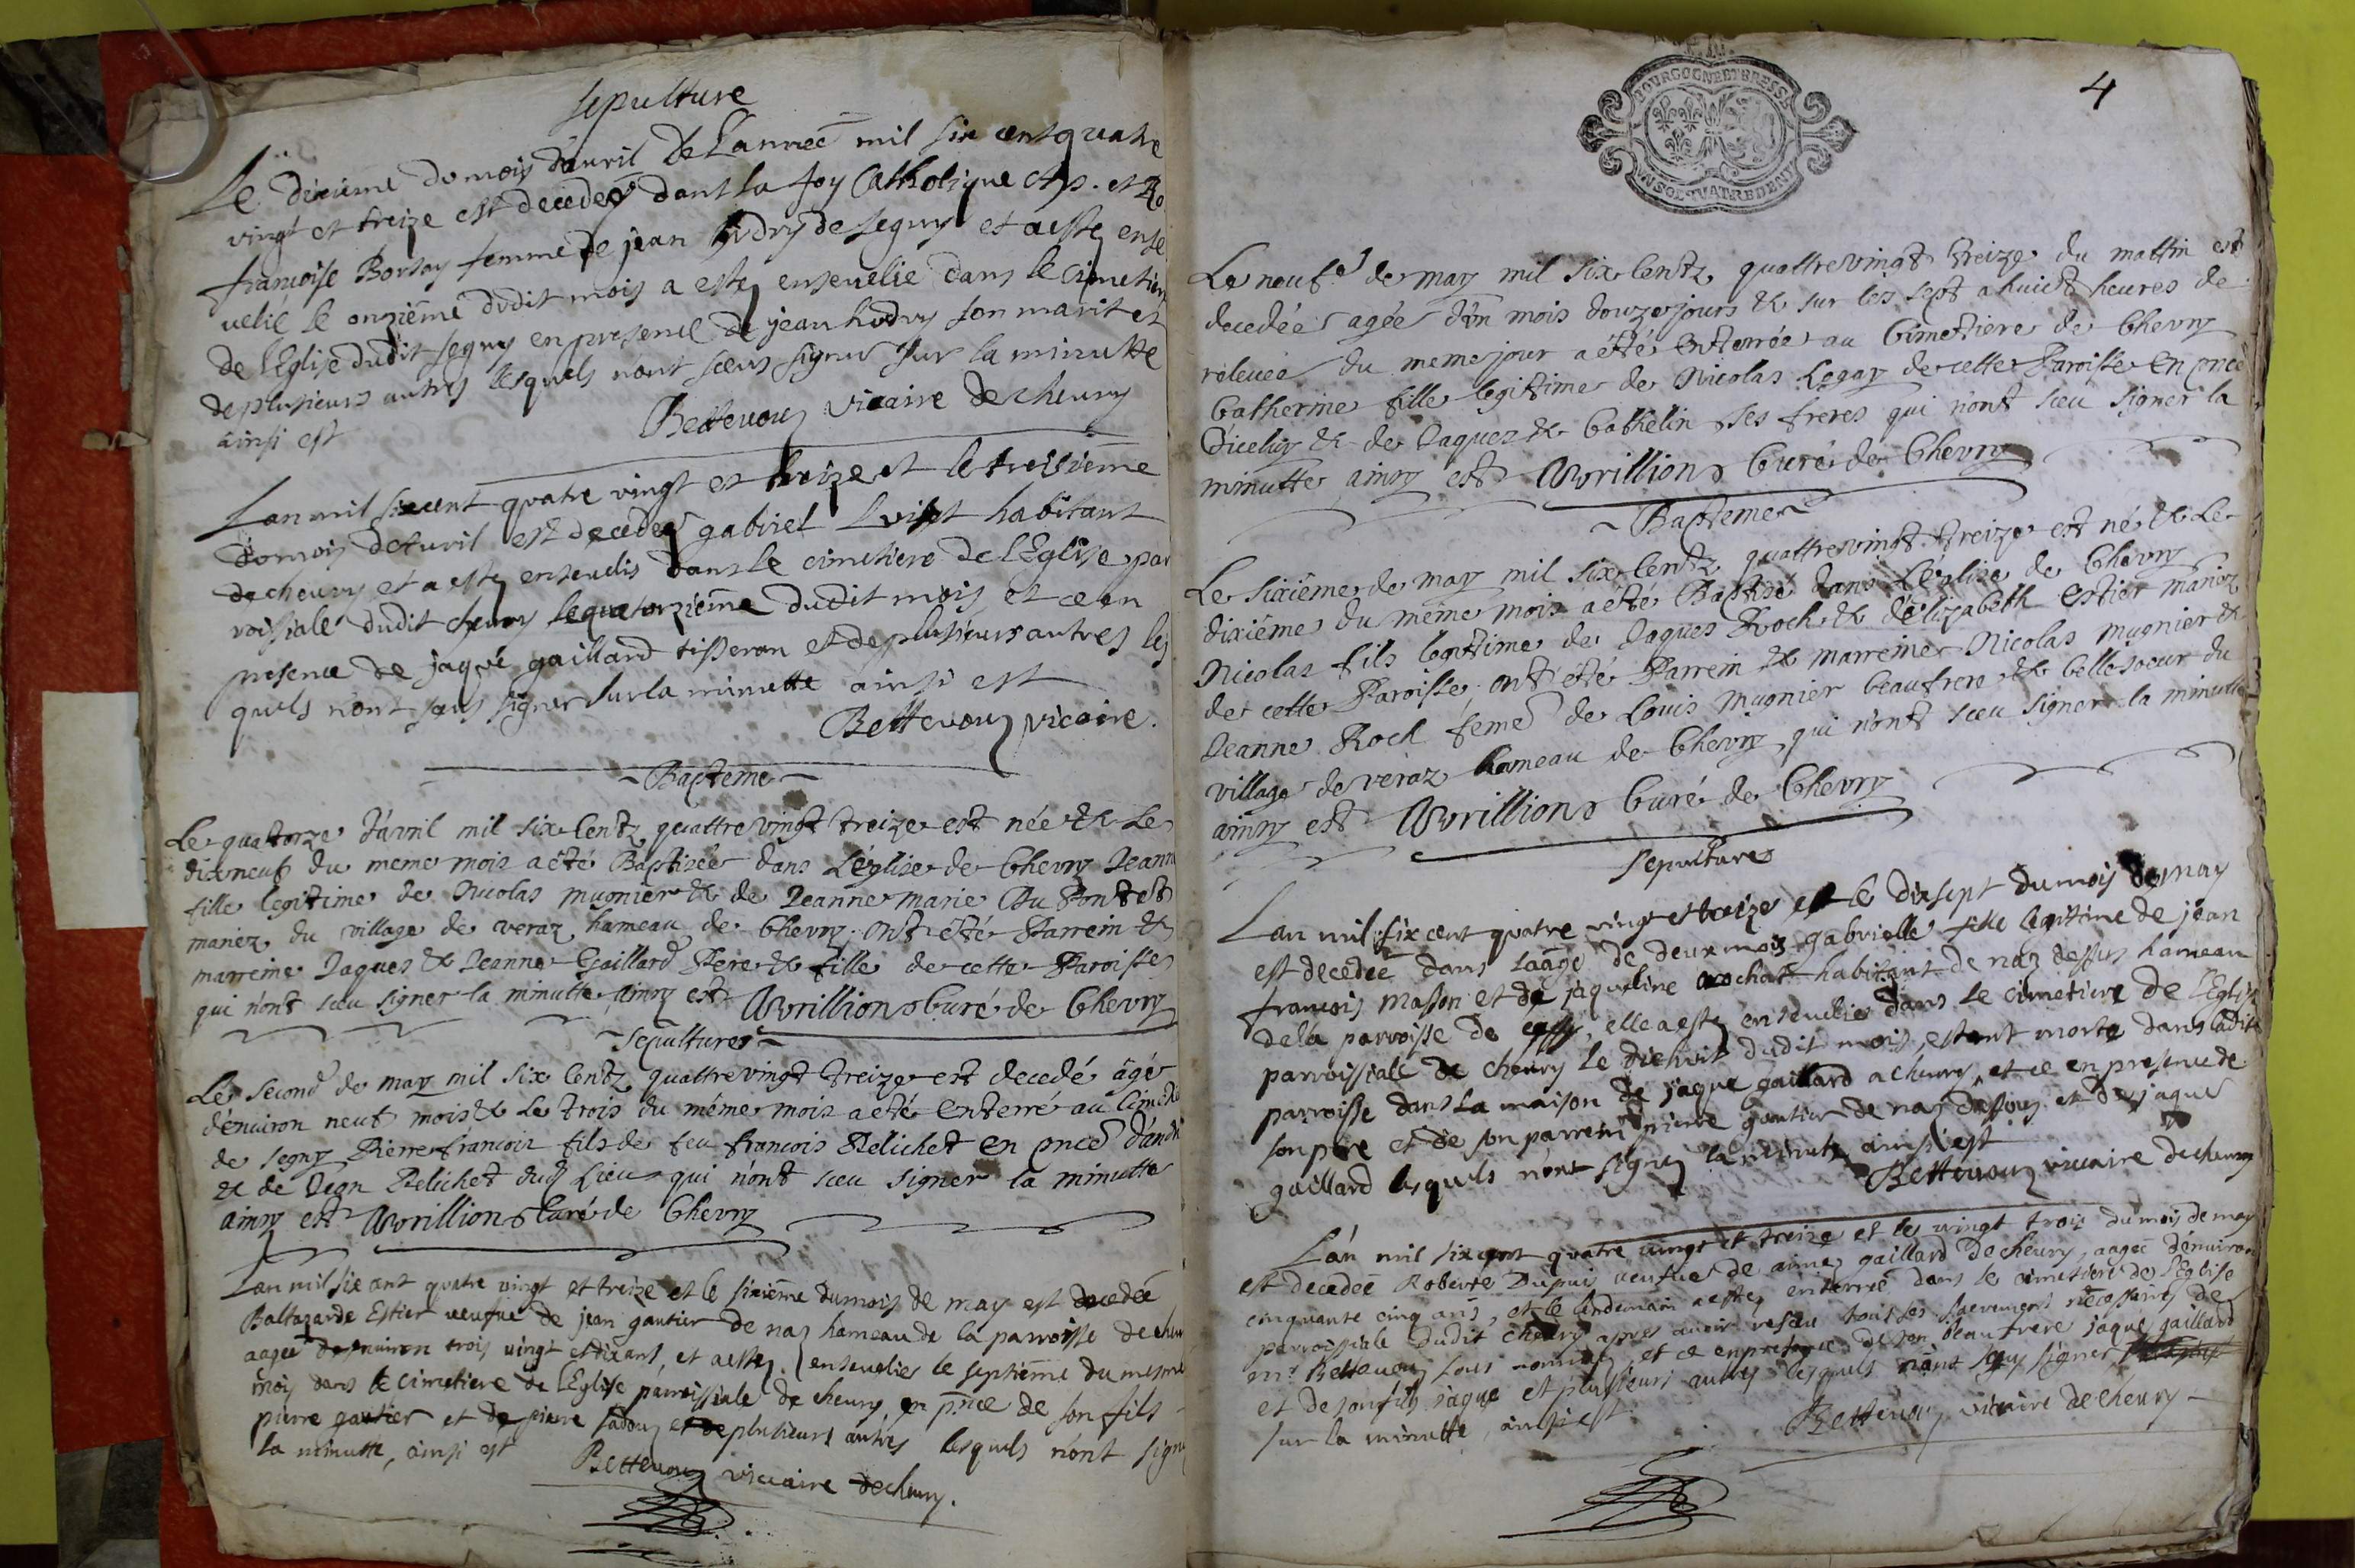 sepulture
Le dixieme du mois d'auril de L'anneé mil six cent quatre
vingt et treize est decedeé dans la foy Catholique Ap. et Ro
francoise Borsay femme de jean hudry de seguy et a esté ense
uelie le onzieme dudit mois a esté enseuelie dans le cimetiere
de l'Eglise dudit seguy en presence de jean hudry son marit et
de plusieurs autres lesquels n'ont sceus signer sur la minutte
ainsi est Bettevouz vicaire de cheury
Lan mil sixcent quatre vingt et treize et le treisieme
du mois d'Auril est decedeé gabriel habitant
de cheury et a esté enseuelis dans le cimetiere de l'Eglise par
roissiale dudit cheury le quatorzieme dudit mois et ce en
presence de jaque gaillard tisseran et de plusieurs autres les
quels n'ont sceus signer sur la minutte ainsi est
Bettevouz vicaire.
~Bapteme~
Le quatorze d'avril mil six Centz quattre vingt treize est née & Le
dixneuf du meme mois a été Baptisée dans L'église de Chevry Jeanne
fille legitime de Nicolas mugnier & de Jeanne marie Du Pont est
mariez du village de veraz hameau de Chevry. ont été Parrein &
marreine Jaques & Jeanne Gaillard Pere & fille de cette Paroisse
qui n'ont sceu signer la minutte ainsy est Wvrillion Curé de Chevry
~Sepultures~
Le second de may mil six Centz quattre vingt treize est decedé âgé
d'environ neuf mois & Le trois du méme mois a été enterré au Cimeti
de segny Pierre francois fils de feu francois Pelichet en pnce d'andr
& de Jean Pelichet dud Lieu qui n'ont sceu signer la minutte
ainsy est Wvrillion Curé de Chevry
Lan mil six cent quatre vingt et treize et le sixieme du mois de may est decedeé
Baltazarde Estier veufue de jean gautier de naz hameau de la parroisse de cheu
aageé d'enuiron trois vingt et dix ans, et a esté enseuelies le septieme du mesme
mois dans le cimetiere de l'Eglise parroissiale de cheury en pnce de son fils
pierre gautier et de pierre et de plusieurs autres lesquels n'ont signé
la minutte, ainsi est Bettevouz viccaire de cheury.
4
BOURGOGNE ET BRESSE
VN SOL QUATRE DEN
Le neuf.e de may mil six Centz quattre vingt treize du mattin est
decedée agée d'un mois douze jours & sur les sept a huict heures de
relevée du meme jour a été enterrée au Cimetiere de Chevry
Catherine fille legitime de Nicolas Legay de cette Paroisse en pnce
d'iceluy & de Jaques & Cathelin ses freres qui n'ont sceu signer la
minutte ainsy est Wvrillion Curé de Chevry
~Bapteme~
Le sixiéme de may mil six Centz quattre vingt treize est né & Le
dixiéme du même mois a été Baptisé dans L'église de Chevry
Nicolas fils legitime de Jaques Roch & d'élizabeth Estier mariez
de cette Paroisse. ont été Parrein & marreine Nicolas mugnier &
Jeanne Roch feme de Louis mugnier beaufrere & belle soeur du
village de veraz hameau de Chevry qui n'ont sceu signer la minutte
ainsy est Wvrillion Curé de Chevry
sepulture
Lan mil six cent quatre vingt et treize et le dixsept du mois de may
est decedeé dans l'aage de deux mois gabrielle fille legitime de jean
francois masson et de jaqueline rochat habitant de naz dessus hameau
de la parroisse de , elle a esté enseuelie dans le cimetiere de l'Eglise
parroissiale de cheury le dixhuit dudit mois, estant morte dans ladite
parroisse dans la maison de jaque gaillard a cheury, et ce en presence de
son pere et de son parrein pierre gautier de naz dessous et de jaque
gaillard lesquels n'ont signé la minute ainsi est
Bettevouz viccaire de cheury
L'an mil six cent quatre vingt et treize et le vingt trois du mois de may
est decedeé Roberte Dupuis veufue de aimé gaillard de cheury, aageé d'enuiron
cinquante cinq ans, et le lendemain a esté enterreé dans le cimetiere de l'Eglise
parroissiale dudit cheury apres auoir resceu tout les sacrements necessaires de
mr. Bettevouz sous nommé, et ce en presence de son beau frere jaque gaillard
et de son fils jaque et plusieurs autres lesquels n'ont sceu signer
sur la minutte, ainsi est. Bettevouz vicaire de cheury